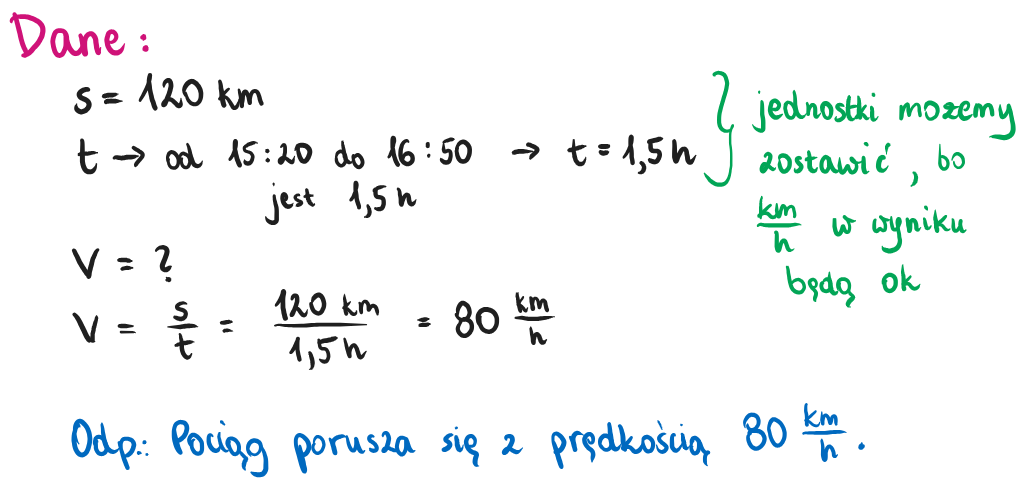 Dane:
s = 120 km
t → od 15:20 do 16:50 → t = 1,5 h
jest 1,5 h
jednostki możemy
zostawić, bo
km/h w wyniku
będą ok
V = ?
V = s/t = 120 km/1,5 h = 80 km/h
Odp.: Pociąg porusza się z prędkością 80 km/h.